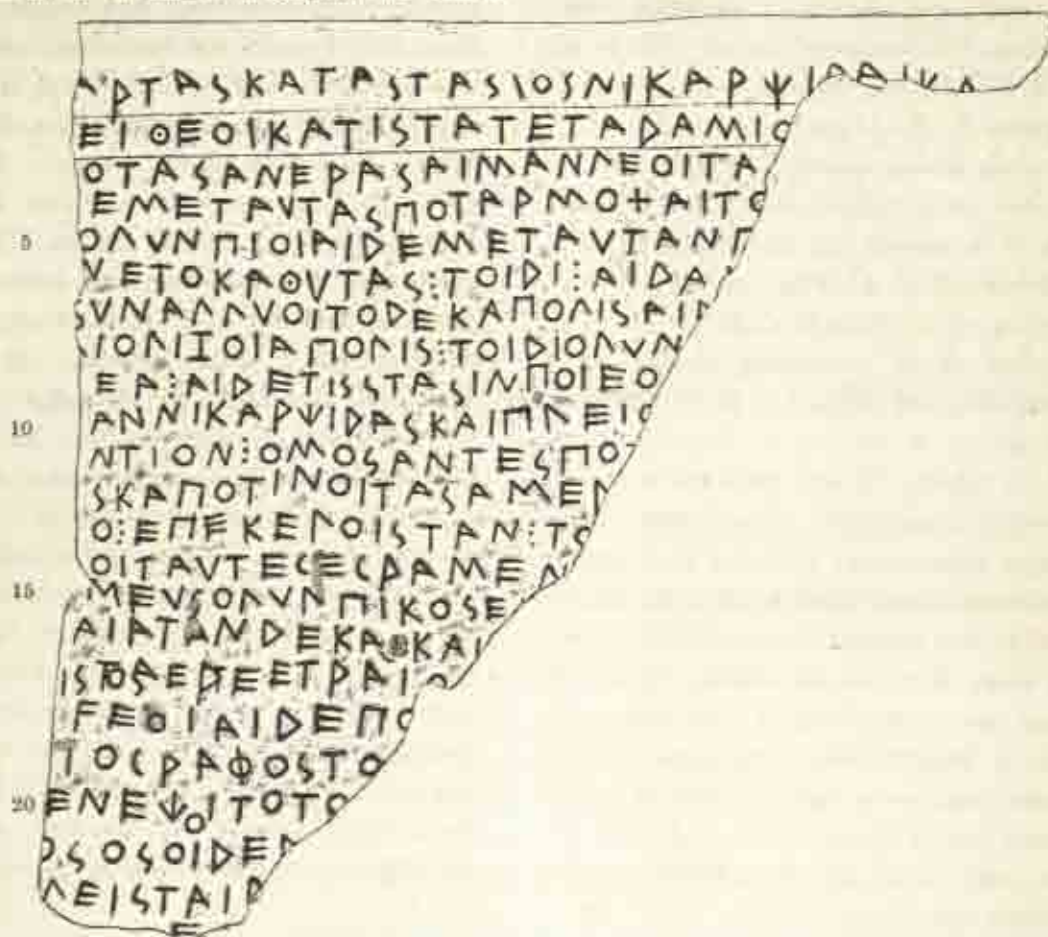 ΑΡΤΑΣΚΑΤΑΣΤΑΣΙΟΣΝΙΚΑΡΨΙΔΑΙ
ΕΙΘΕΟΙΚΑΤΙΣΤΑΤΕΤΑΔΑΜΙΟ
ΟΤΑΣΑΝΕΡΑΣΑΙΜΑΝΛΕΟΙΤΑ
ΕΜΕΤΑΥΤΑΣΠΟΤΑΡΜΟ+ΑΙΤΟ
5 ΟΛΥΝΠΙΟΙΑΙΔΕΜΕΤΑΥΤΑΝΠ
ΥΕΤΟΚΑΘΥΤΑΣ⁝ΤΟΙΔΙ⁝ΑΙΔΑ
ΣΥΝΑΛΛΥΟΙΤΟΔΕΚΑΠΟΛΙΣΑΙΡ
ΙΟΛΙΖΟΙΑΠΟΛΙΣ⁝ΤΟΙΔΙΟΛΥΝ
ΕΑ⁝ΑΙΔΕΤΙΣΣΤΑΣΙΝΠΟΙΕΟ
10 ΑΝΝΙΚΑΡΨΙΔΑΣΚΑΙΠΛΕΙΟ
ΝΤΙΟΝ⁝ΟΜΟΣΑΝΤΕΣΠΟ
ΣΚΑΠΟΤΙΝΟΙΤΑΣΑΜΕΡ
Ο⁝ΕΠΕΚΕΛΟΙΣΤΑΝ⁝ΤΟ
ΟΙΤΑΥΤΕΓΕΓΡΑΜΕΝ
15 ΜΕΥΣΟΛΥΝΠΙΚΟΣΕ
ΑΙΑΤΑΝΔΕΚΑΘΚΑΙ
ΙΣΤΟΣΑΕΡΕΕΤΡΑΙΟ
ϜΕΟΙΑΙΔΕΠΟ
ΤΟΓΡΑΦΟΣΤΟ
20 ΕΝΕΨΟΙΤΟΤΟ
ΟΣΟΣΟΙΔΕΠ
ΛΕΙΣΤΑΙΡ
Ε